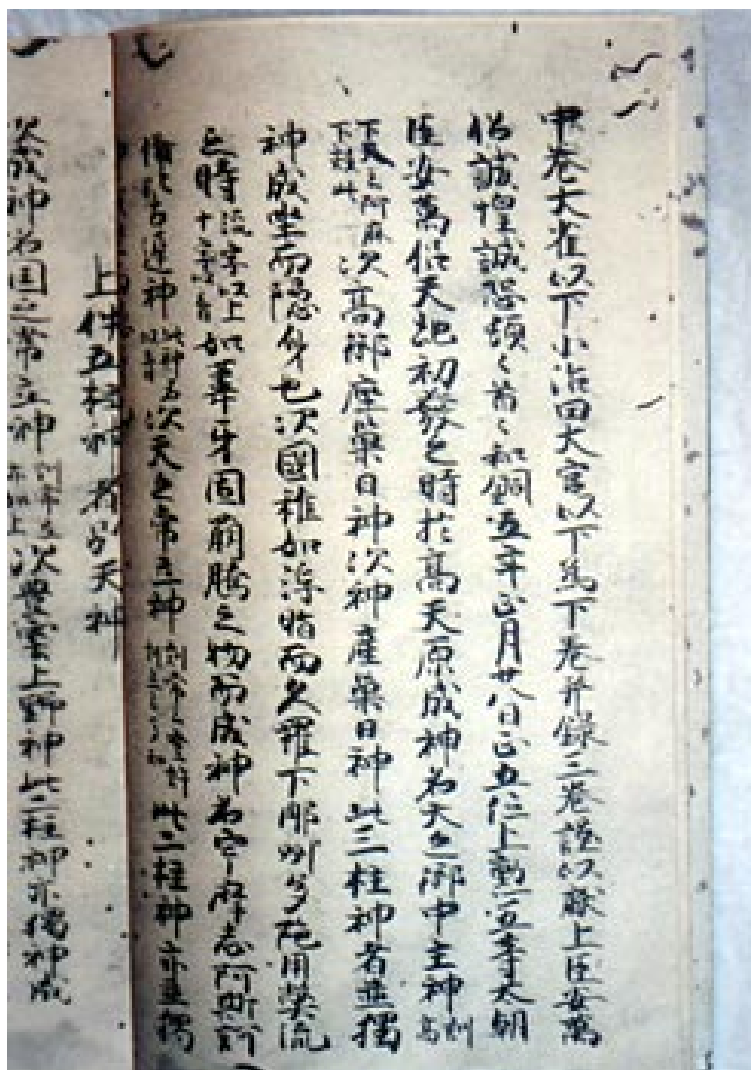 中巻大雀以下小治田大宮以下為下巻并録三巻謹以献上臣安萬
侶誠惶誠恐頓々首々和銅五年正月廿八日正五位上勲五等太朝
臣安萬侶天地初發之時於高天原成神名天之御中主神訓高
下天云阿麻下效此次高御産巣日神次神産巣日神此三柱神者並獨
神成坐而隠身也次國稚如浮脂而久羅下那州多陀用弊流
之時流字以上十字以音如葦牙因萌騰之物而成神名宇麻志阿斯訶
備比古遅神此神名以音次天之常立神訓常云登許訓立云多知此二柱神亦並獨
上件五柱神者別天神
次成神名国之常立神訓常立亦如上次豊雲上野神此二柱神亦獨神成